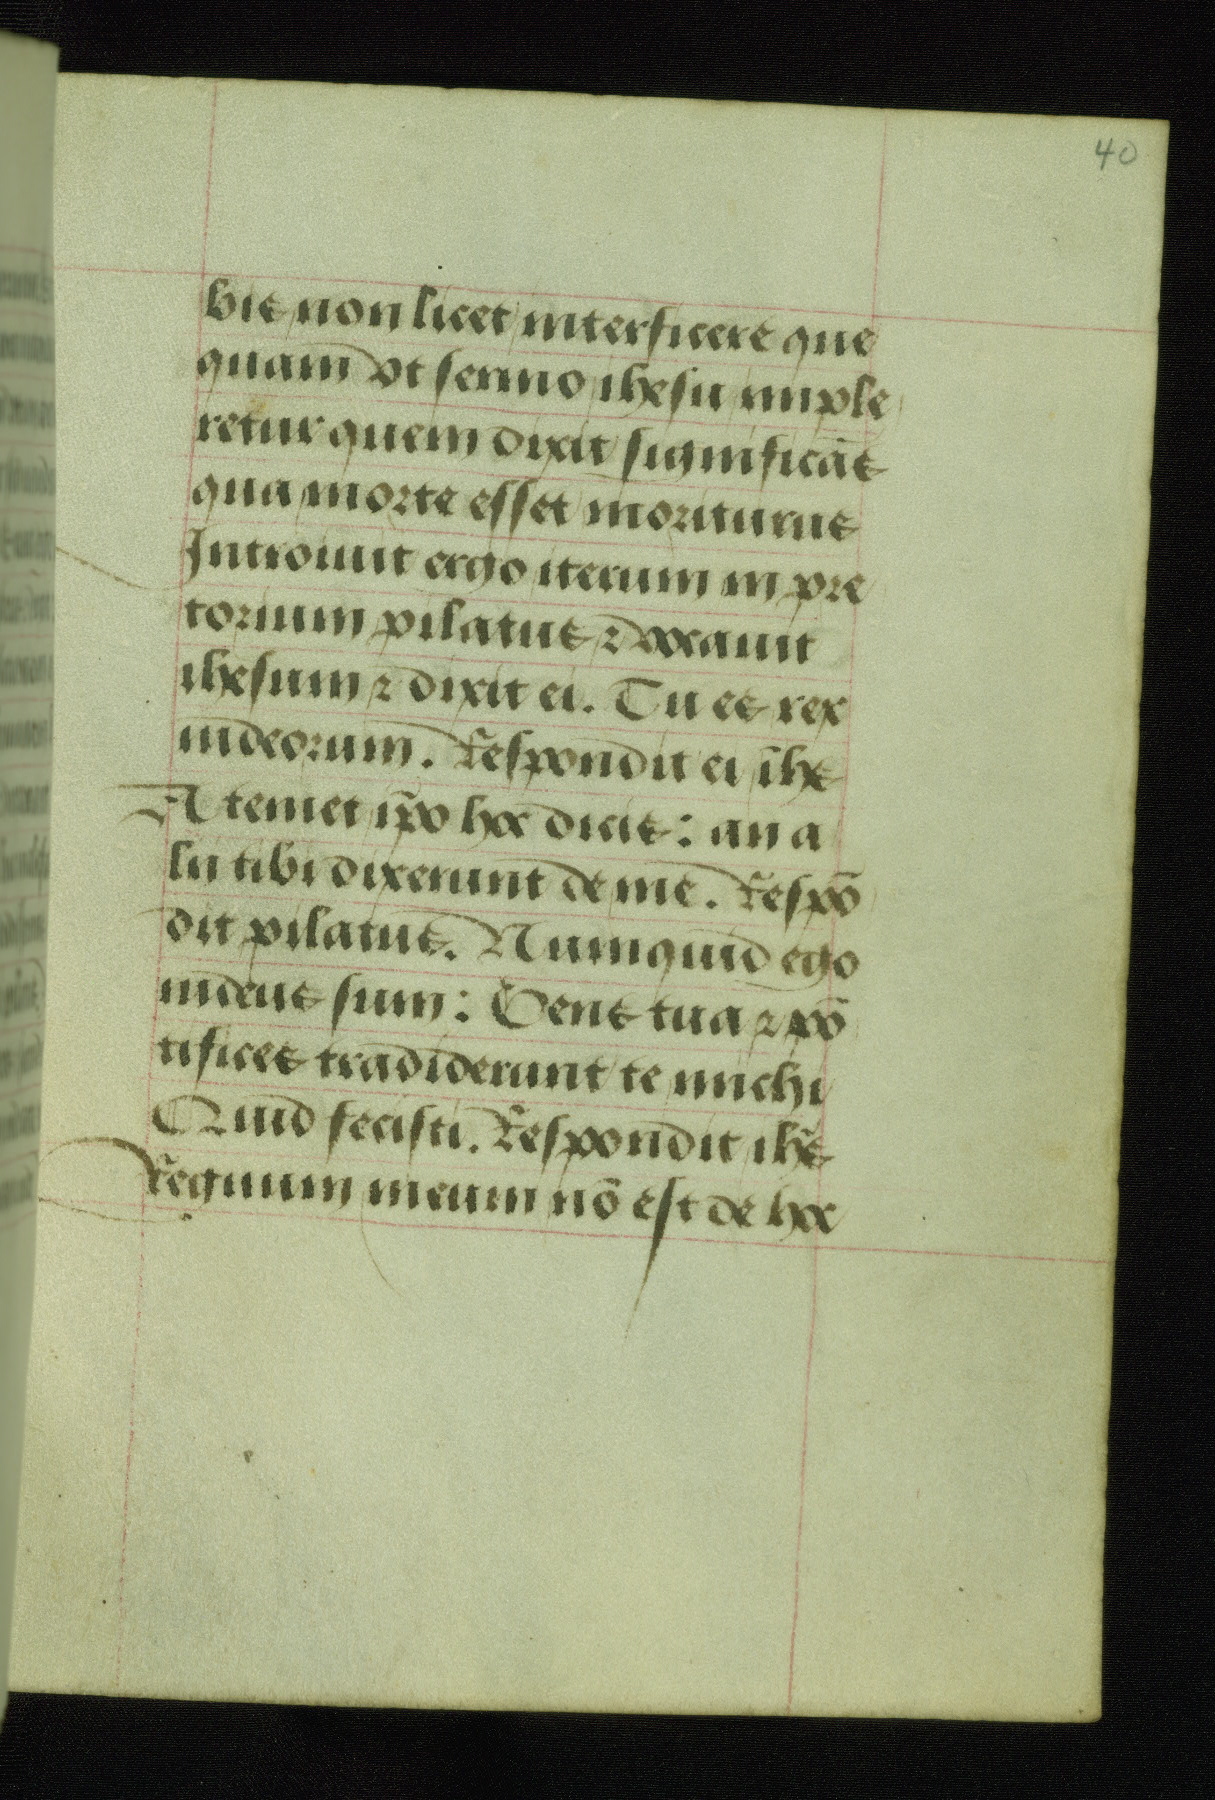 40
bis non licet interficere que
quam vt sermo ihesu imple
retur quem dixit significās
qua morte esset moriturus
Introiuit ergo iterum in pre
torium pilatus ⁊ vocauit
ihesum ⁊ dixit ei. Tu es rex
iudeorum. Respondit ei ihs
A temet ip̄o hoc dicis: an a
lii tibi dixerunt de me. Respō
dit pilatus. Numquid ego
iudeus sum: Gens tua ⁊ pō
tifices tradiderunt te michi
Quid fecisti. Respondit ih̄s
Regnum meum nō est de hoc